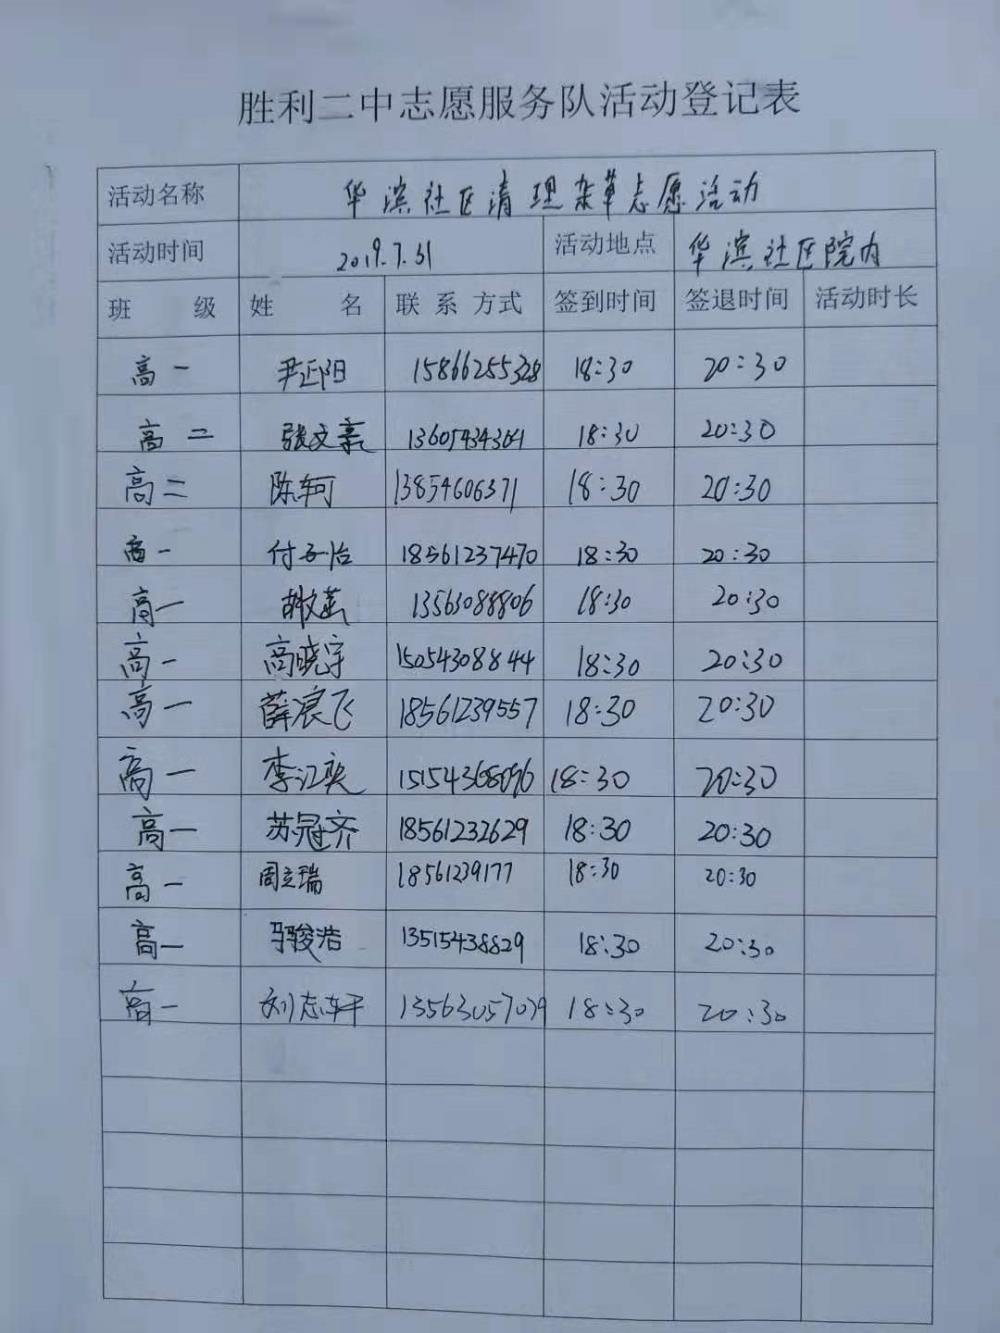 胜利二中志愿服务队活动登记表
活动名称 华滨社区清理杂草志愿活动
活动时间 2019.7.31 活动地点 华滨社区院内
班 级 姓 名 联 系 方式 签到时间 签退时间 活动时长
高一 尹正阳 15866255328 18:30 20:30
高二 张文豪 13605434364 18:30 20:30
高二 陈轲 13854606371 18:30 20:30
高一 付子怡 18561237470 18:30 20:30
高一 13563088806 18:30 20:30
高一 高晓宇 15054308844 18:30 20:30
高一 薛浪飞 18561239557 18:30 20:30
高一 李江奕 15154368096 18:30 20:30
高一 苏冠齐 18561232629 18:30 20:30
高一 周立瑞 18561239177 18:30 20:30
高一 马骏浩 13515438829 18:30 20:30
高一 刘志轩 13563057039 18:30 20:30